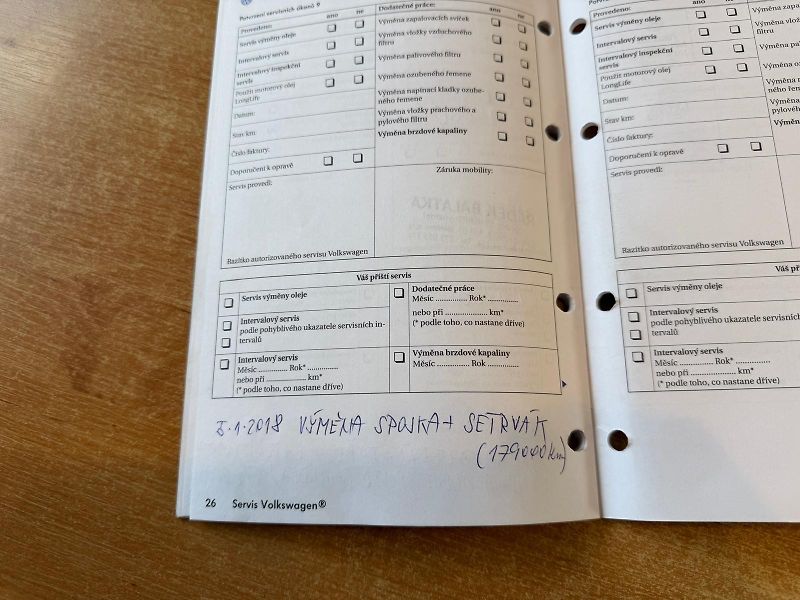 Potvrzení servisních úkonů 9
Provedeno: ano ne
Servis výměny oleje
Intervalový servis
Intervalový inspekční
servis
Použit motorový olej
LongLife
Datum:
Stav km:
Číslo faktury:
Doporučení k opravě
Servis provedl:
Razítko autorizovaného servisu Volkswagen
Dodatečné práce: ano ne
Výměna zapalovacích svíček
Výměna vložky vzduchového
filtru
Výměna palivového filtru
Výměna ozubeného řemene
Výměna napínací kladky ozube-
ného řemene
Výměna vložky prachového a
pylového filtru
Výměna brzdové kapaliny
Záruka mobility:
RADEK BALATKA
Váš příští servis
Servis výměny oleje
Intervalový servis
podle pohyblivého ukazatele servisních in-
tervalů
Intervalový servis
Měsíc .............. Rok* ..............
nebo při .................. km*
(* podle toho, co nastane dříve)
Dodatečné práce
Měsíc .............. Rok* ..............
nebo při .................. km*
(* podle toho, co nastane dříve)
Výměna brzdové kapaliny
Měsíc .............. Rok ..............
5.1.2018 VÝMĚNA SPOJKA + SETRVÁK
(179000 km)
26 Servis Volkswagen®
Provedeno: ano ne
Servis výměny oleje
Intervalový servis
Intervalový inspekční
servis
Použit motorový olej
LongLife
Datum:
Stav km:
Číslo faktury:
Doporučení k opravě
Servis provedl:
Razítko autorizovaného servisu Volkswagen
Výměna
filtru
Výměna
Výměna
Výměna
Váš příští servis
Servis výměny oleje
Intervalový servis
podle pohyblivého ukazatele servisních
tervalů
Intervalový servis
Měsíc .............. Rok* ..............
nebo při .................. km*
(* podle toho, co nastane dříve)